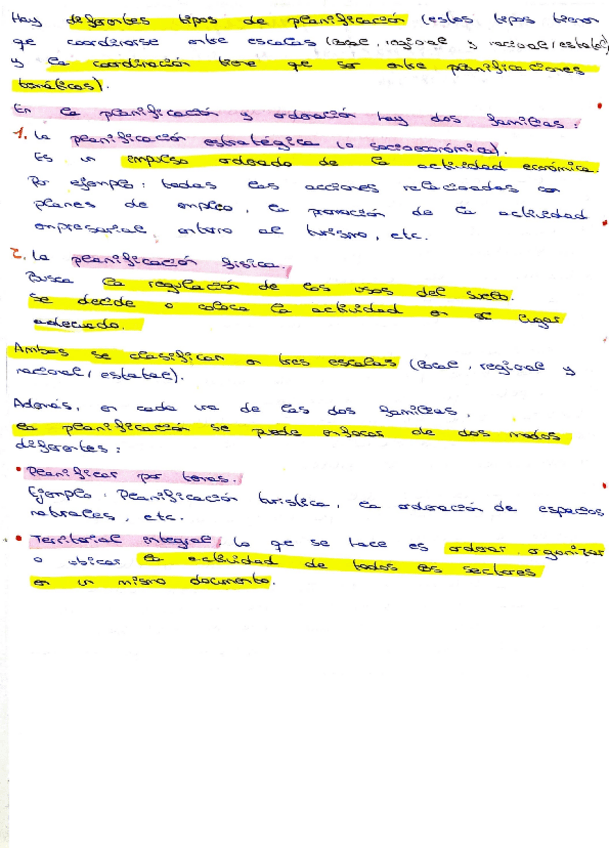 Hay diferentes tipos de planificación (estos tipos tienen
que coordinarse entre escalas (local, regional y nacional/estatal)
y la coordinación tiene que ser entre planificaciones
temáticas).
En la planificación y ordenación hay dos familias:
1. La planificación estratégica (o socioeconómica).
Es un impulso ordenado de la actividad económica.
Por ejemplo: todas las acciones relacionadas con
planes de empleo, la promoción de la actividad
empresarial, entorno al turismo, etc.
2. La planificación física.
Busca la regulación de los usos del suelo.
Se decide o coloca la actividad en el lugar
adecuado.
Ambas se clasifican en tres escalas (local, regional y
nacional/estatal).
Además, en cada una de las dos familias,
la planificación se puede enfocar de dos modos
diferentes:
• Planificar por temas.
Ejemplo: Planificación turística, la ordenación de espacios
naturales, etc.
• Territorial integral, lo que se hace es ordenar, organizar
o ubicar la actividad de todos los sectores
en un mismo documento.